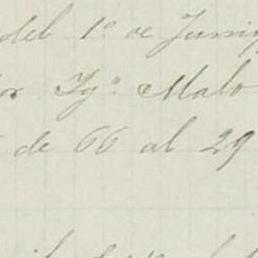 del 1º de Junio
or Igº Malo
de 66 al 29